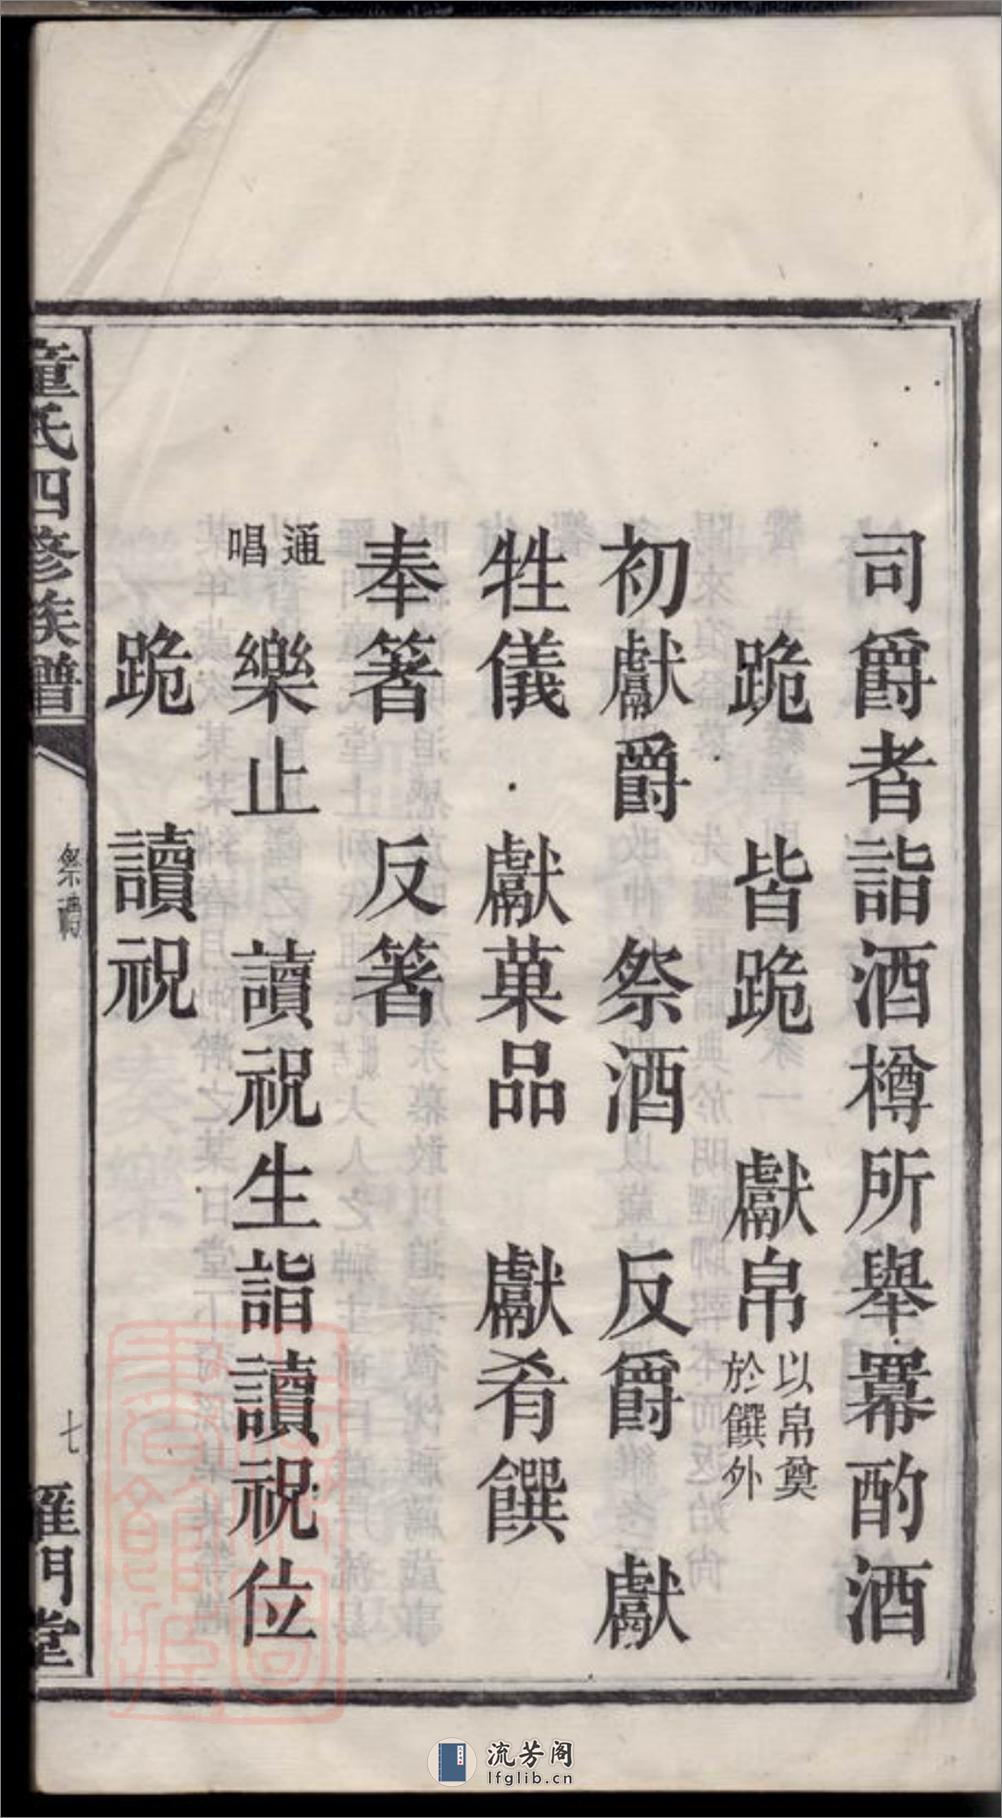 司爵者詣酒樽所舉冪酌酒
跪　皆跪　獻帛以帛奠於饌外
初獻爵　祭酒　反爵　獻
牲儀　獻菓品　獻肴饌
奉箸　反箸
通唱　樂止　讀祝生詣讀祝位
跪　讀祝
童氏四修族譜
祭
七
雍門堂
流芳阁
lfglib.cn